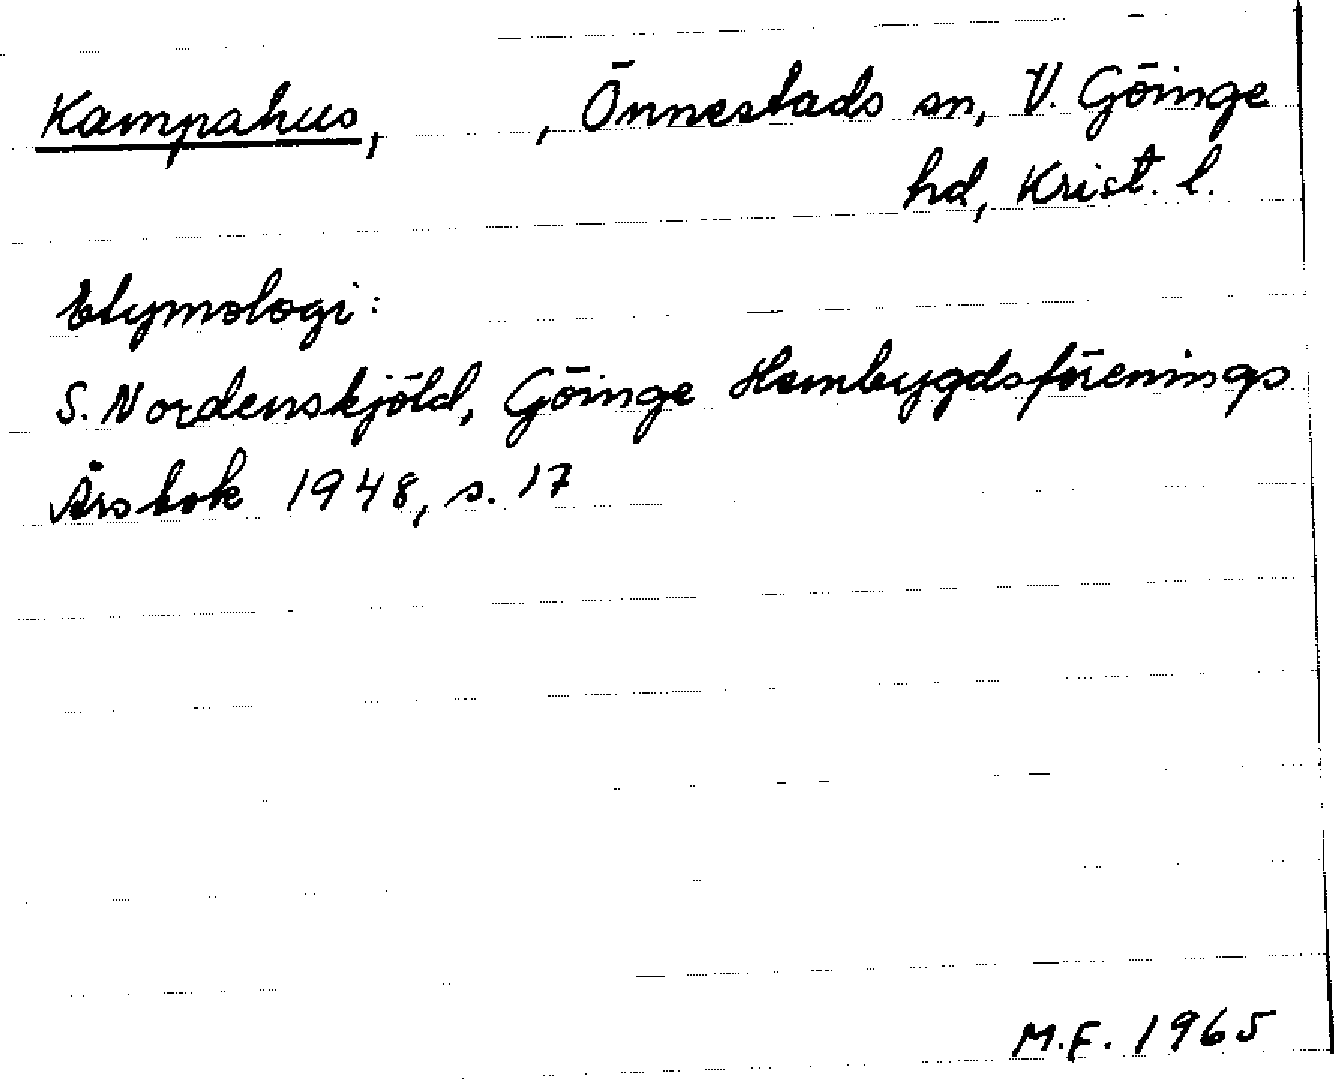 Kampahus, , Önnestads sn, V. Göinge
hd, Krist. l.
Etymologi:
S. Nordenskjöld, Göinge Hembygdsförenings
Årsbok 1948, s. 17
M.F. 1965